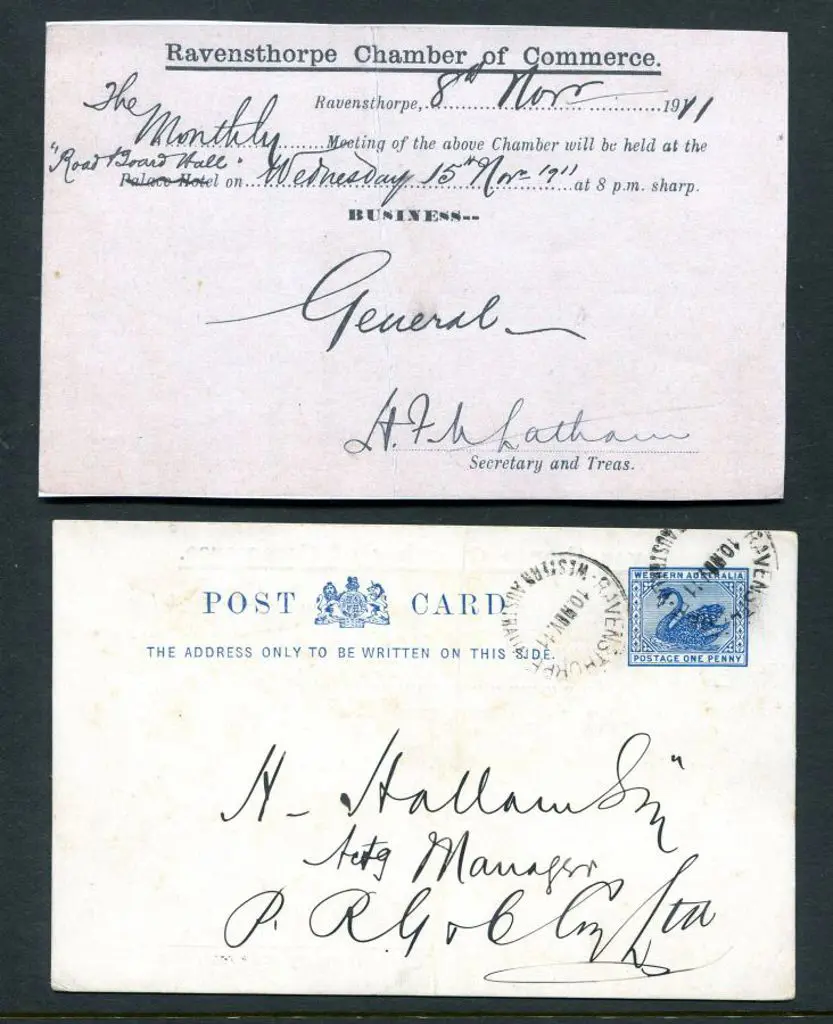 Ravensthorpe Chamber of Commerce.
Ravensthorpe, 8th Novr 1911
The Monthly Meeting of the above Chamber will be held at the
"Road Board Hall"
Palace Hotel on Wednesday 15th Novr 1911 at 8 p.m. sharp.
BUSINESS--
General
H. F. Latham
Secretary and Treas.
POST CARD
THE ADDRESS ONLY TO BE WRITTEN ON THIS SIDE.
RAVENSTHORPE
10 NOV 11
WESTERN AUSTRALIA
RAVENSTH
10 NOV 11
AUSTR
WESTERN AUSTRALIA
POSTAGE ONE PENNY
H - Hallam Esq
Actg Manager
P. R. G & C Coy Ltd